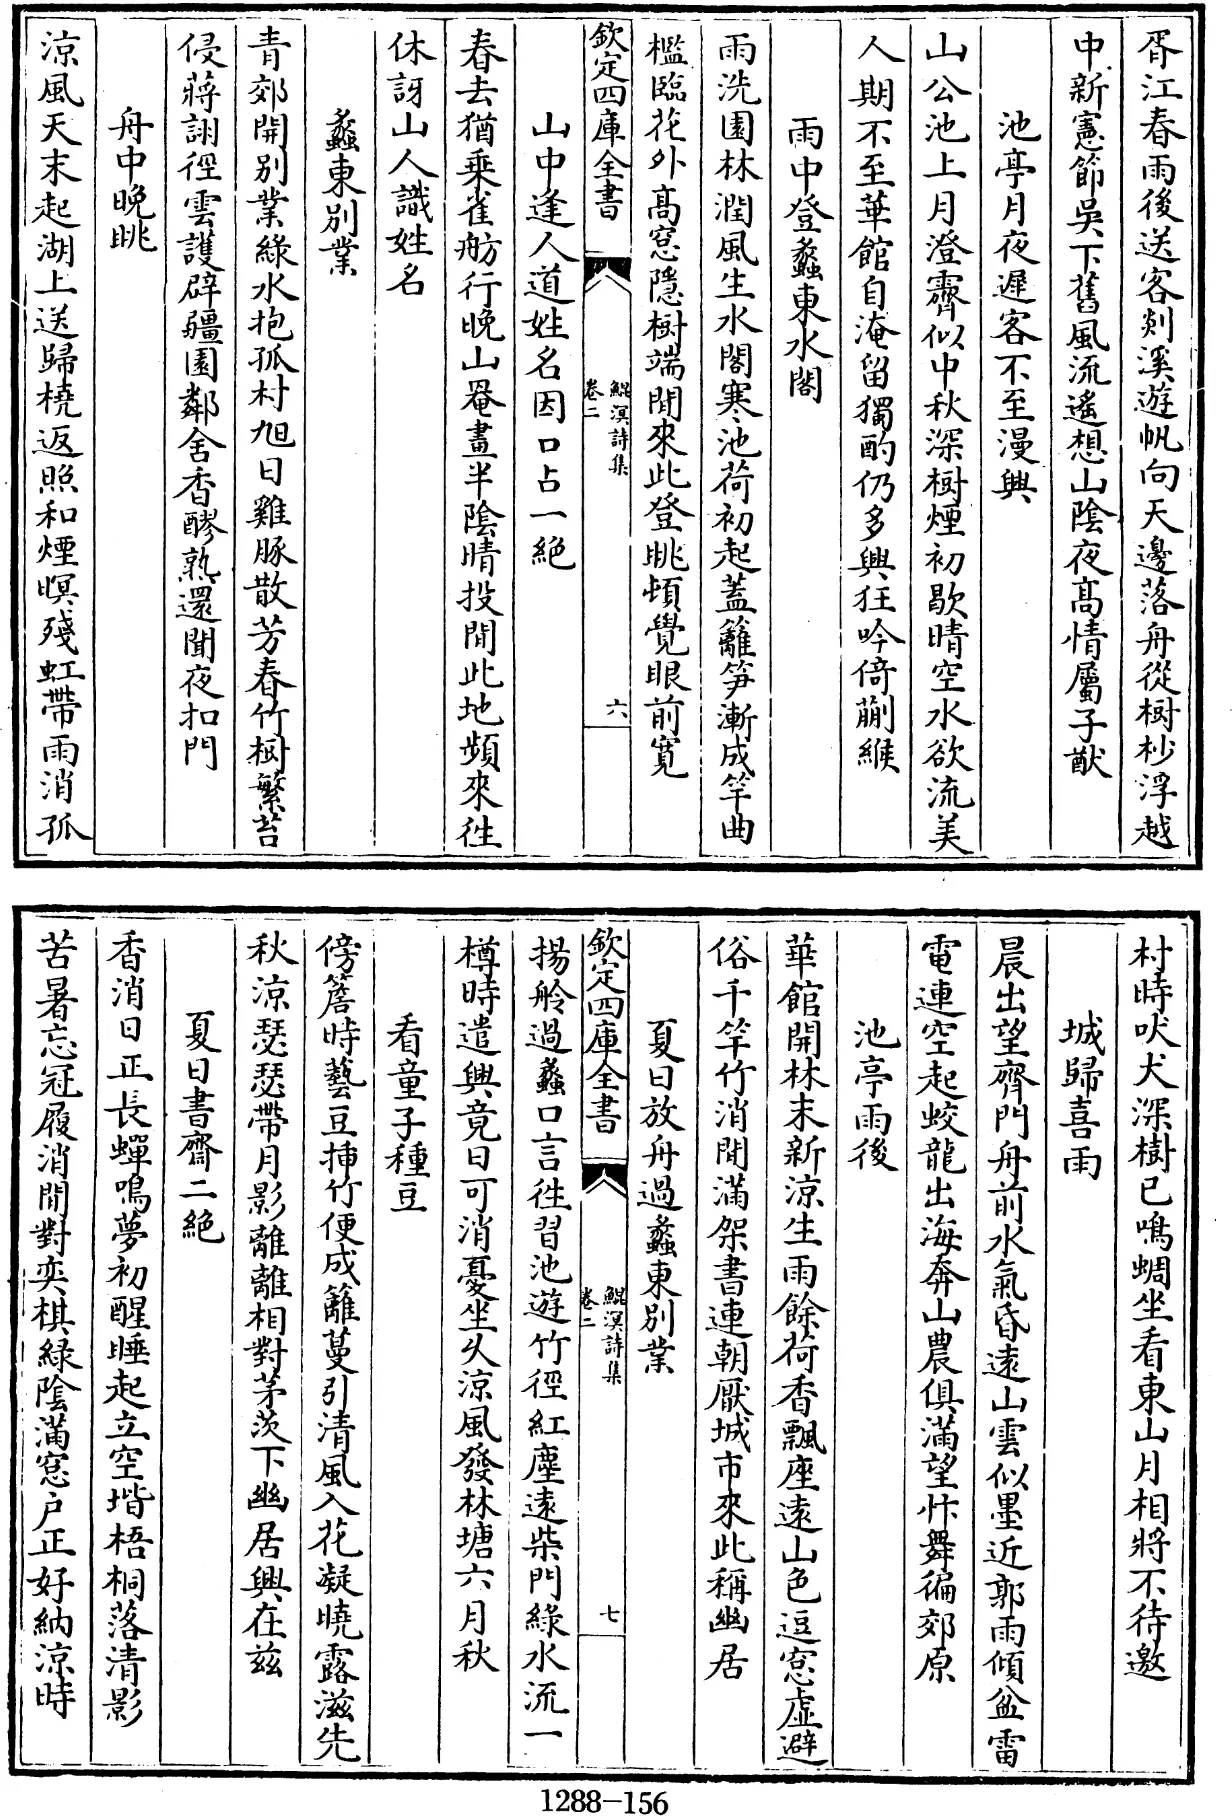 胥江春雨後送客剡溪遊帆向天邊落舟從樹杪浮越
中新憲節吳下舊風流遙想山陰夜高情屬子猷
池亭月夜遲客不至漫興
山公池上月澄霽似中秋深樹煙初歇晴空水欲流美
人期不至華館自淹留獨酌仍多興狂吟倚蒯緱
雨中登蠡東水閣
雨洗園林潤風生水閣寒池荷初起蓋籬笋漸成竿曲
檻臨花外高窓隱樹端閒來此登眺頓覺眼前寛
欽定四庫全書
鯤溟詩集
卷二
六
山中逢人道姓名因口占一絶
春去猶乗雀舫行晚山罨畫半陰晴投閒此地頻來徃
休訝山人識姓名
蠡東別業
青郊開別業綠水抱孤村旭日雞豚散芳春竹樹繁苔
侵蔣詡徑雲護辟疆園鄰舍香醪熟還聞夜扣門
舟中晚眺
涼風天末起湖上送歸橈返照和煙暝殘虹帶雨消孤
村時吠犬深樹已鳴蜩坐看東山月相將不待邀
城歸喜雨
晨出望齊門舟前水氣昏遠山雲似墨近郭雨傾盆雷
電連空起蛟龍出海奔山農俱滿望忭舞徧郊原
池亭雨後
華館開林末新涼生雨餘荷香飄座遠山色逗窓虛避
俗千竿竹消閒滿架書連朝厭城市來此稱幽居
夏日放舟過蠡東別業
欽定四庫全書
鯤溟詩集
卷二
七
揚舲過蠡口言徃習池遊竹徑紅塵遠柴門綠水流一
樽時遣興竟日可消憂坐久涼風發林塘六月秋
看童子種豆
傍簷時藝豆揷竹便成籬蔓引清風入花凝曉露滋先
秋涼瑟瑟帶月影離離相對茅茨下幽居興在兹
夏日書齋二絶
香消日正長蟬鳴夢初醒睡起立空堦梧桐落清影
苦暑忘冠履消閒對奕棋綠陰滿窓户正好納涼時
1288-156